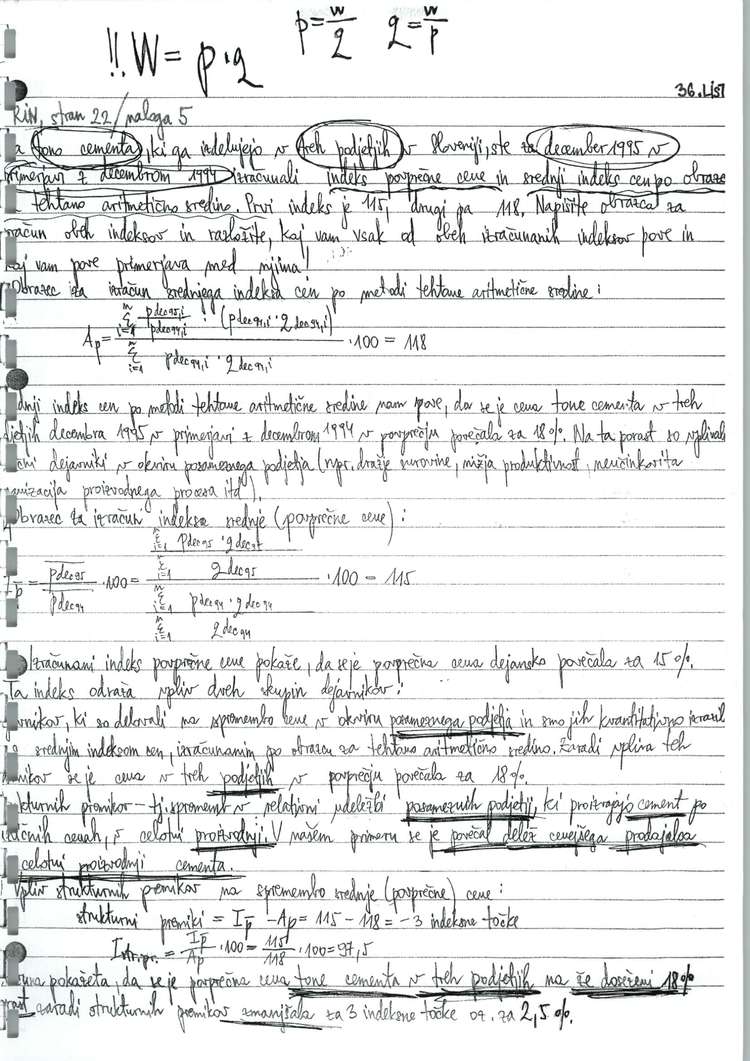 p = w/q q = w/p
!! W = p·q
36. LIST
RIN, stran 22 / naloga 5
tono cementa, ki ga izdelujejo v treh podjetjih v Sloveniji, ste za december 1995 v
primerjavi z decembrom 1994 izračunali indeks povprečne cene in srednji indeks cen po obrazc
tehtano aritmetično sredino. Prvi indeks je 115, drugi pa 118. Napišite obrazca za
račun obeh indeksov in razložite, kaj vam vsak od obeh izračunanih indeksov pove in
kaj vam pove primerjava med njima!
Obrazec za izračun srednjega indeksa cen po metodi tehtane aritmetične sredine:
A_p = (Σ_{i=1}^{n} p dec95,i / p dec94,i · (p dec94,i · q dec94,i)) / (Σ_{i=1}^{n} p dec94,i · q dec94,i) · 100 = 118
dnji indeks cen po metodi tehtane aritmetične sredine nam pove, da se je cena tone cementa v treh
djetjih decembra 1995 v primerjavi z decembrom 1994 v povprečju povečala za 18%. Na ta porast so vplivali
dejavniki v okviru posameznega podjetja (npr. dražje surovine, nižja produktivnost, neučinkovita
anizacija proizvodnega procesa itd).
Obrazec za izračun indeksa srednje (povprečne cene):
I_p̄ = p̄ dec95 / p̄ dec94 · 100 = (Σ_{i=1}^{n} p dec95 · q dec95 / Σ_{i=1}^{n} q dec95) / (Σ_{i=1}^{n} p dec94 · q dec94 / Σ_{i=1}^{n} q dec94) · 100 = 115
Izračunani indeks povprečne cene pokaže, da se je povprečna cena dejansko povečala za 15%.
Ta indeks odraža vpliv dveh skupin dejavnikov:
javnikov, ki so delovali na spremembo cene v okviru posameznega podjetja in smo jih kvantitativno izrazili
srednjim indeksom cen, izračunanim po obrazcu za tehtano aritmetično sredino. Zaradi vpliva teh
javnikov se je cena v treh podjetjih v povprečju povečala za 18%.
ukturnih premikov - tj. sprememb v relativni udeležbi posameznih podjetij, ki proizvajajo cement po
ličnih cenah, v celotni proizvodnji. V našem primeru se je povečal delež cenejšega prodajalca
celotni proizvodnji cementa.
Vpliv strukturnih premikov na spremembo srednje (povprečne) cene:
strukturni premiki = I_p̄ - A_p = 115 - 118 = -3 indeksne točke
I str.pr. = I_p̄ / A_p · 100 = 115 / 118 · 100 = 97,5
una pokažeta, da se je povprečna cena tone cementa v treh podjetjih na že doseženi 18%
rast zaradi strukturnih premikov zmanjšala za 3 indeksne točke oz. za 2,5%.